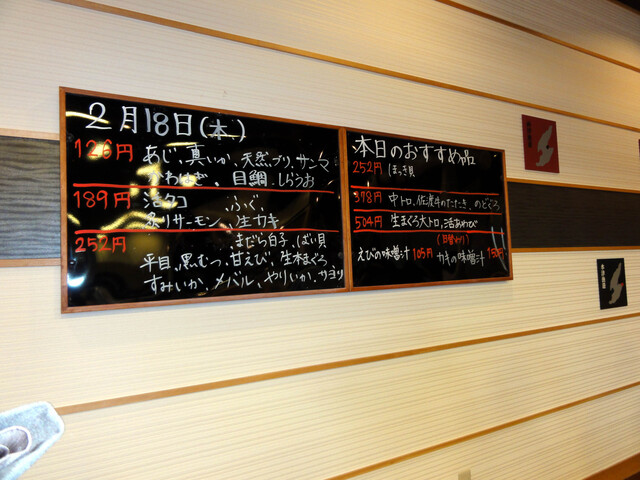 2月18日(木)
126円 あじ、真いか、天然ブリ、サンマ
かわはぎ、目鯛、しらうお
189円 活タコ ふぐ、
炙りサーモン、生カキ、
252円 まだら白子、ばい貝
平目、黒むつ、甘えび、生本まぐろ、
すみいか、メバル、やりいか、サヨリ
本日のおすすめ品
252円 ほっき貝
378円 中トロ、佐渡牛のたたき、のどぐろ
504円 生まぐろ大トロ、活あわび
(日替わり)
えびの味噌汁 105円 カキの味噌汁 158円